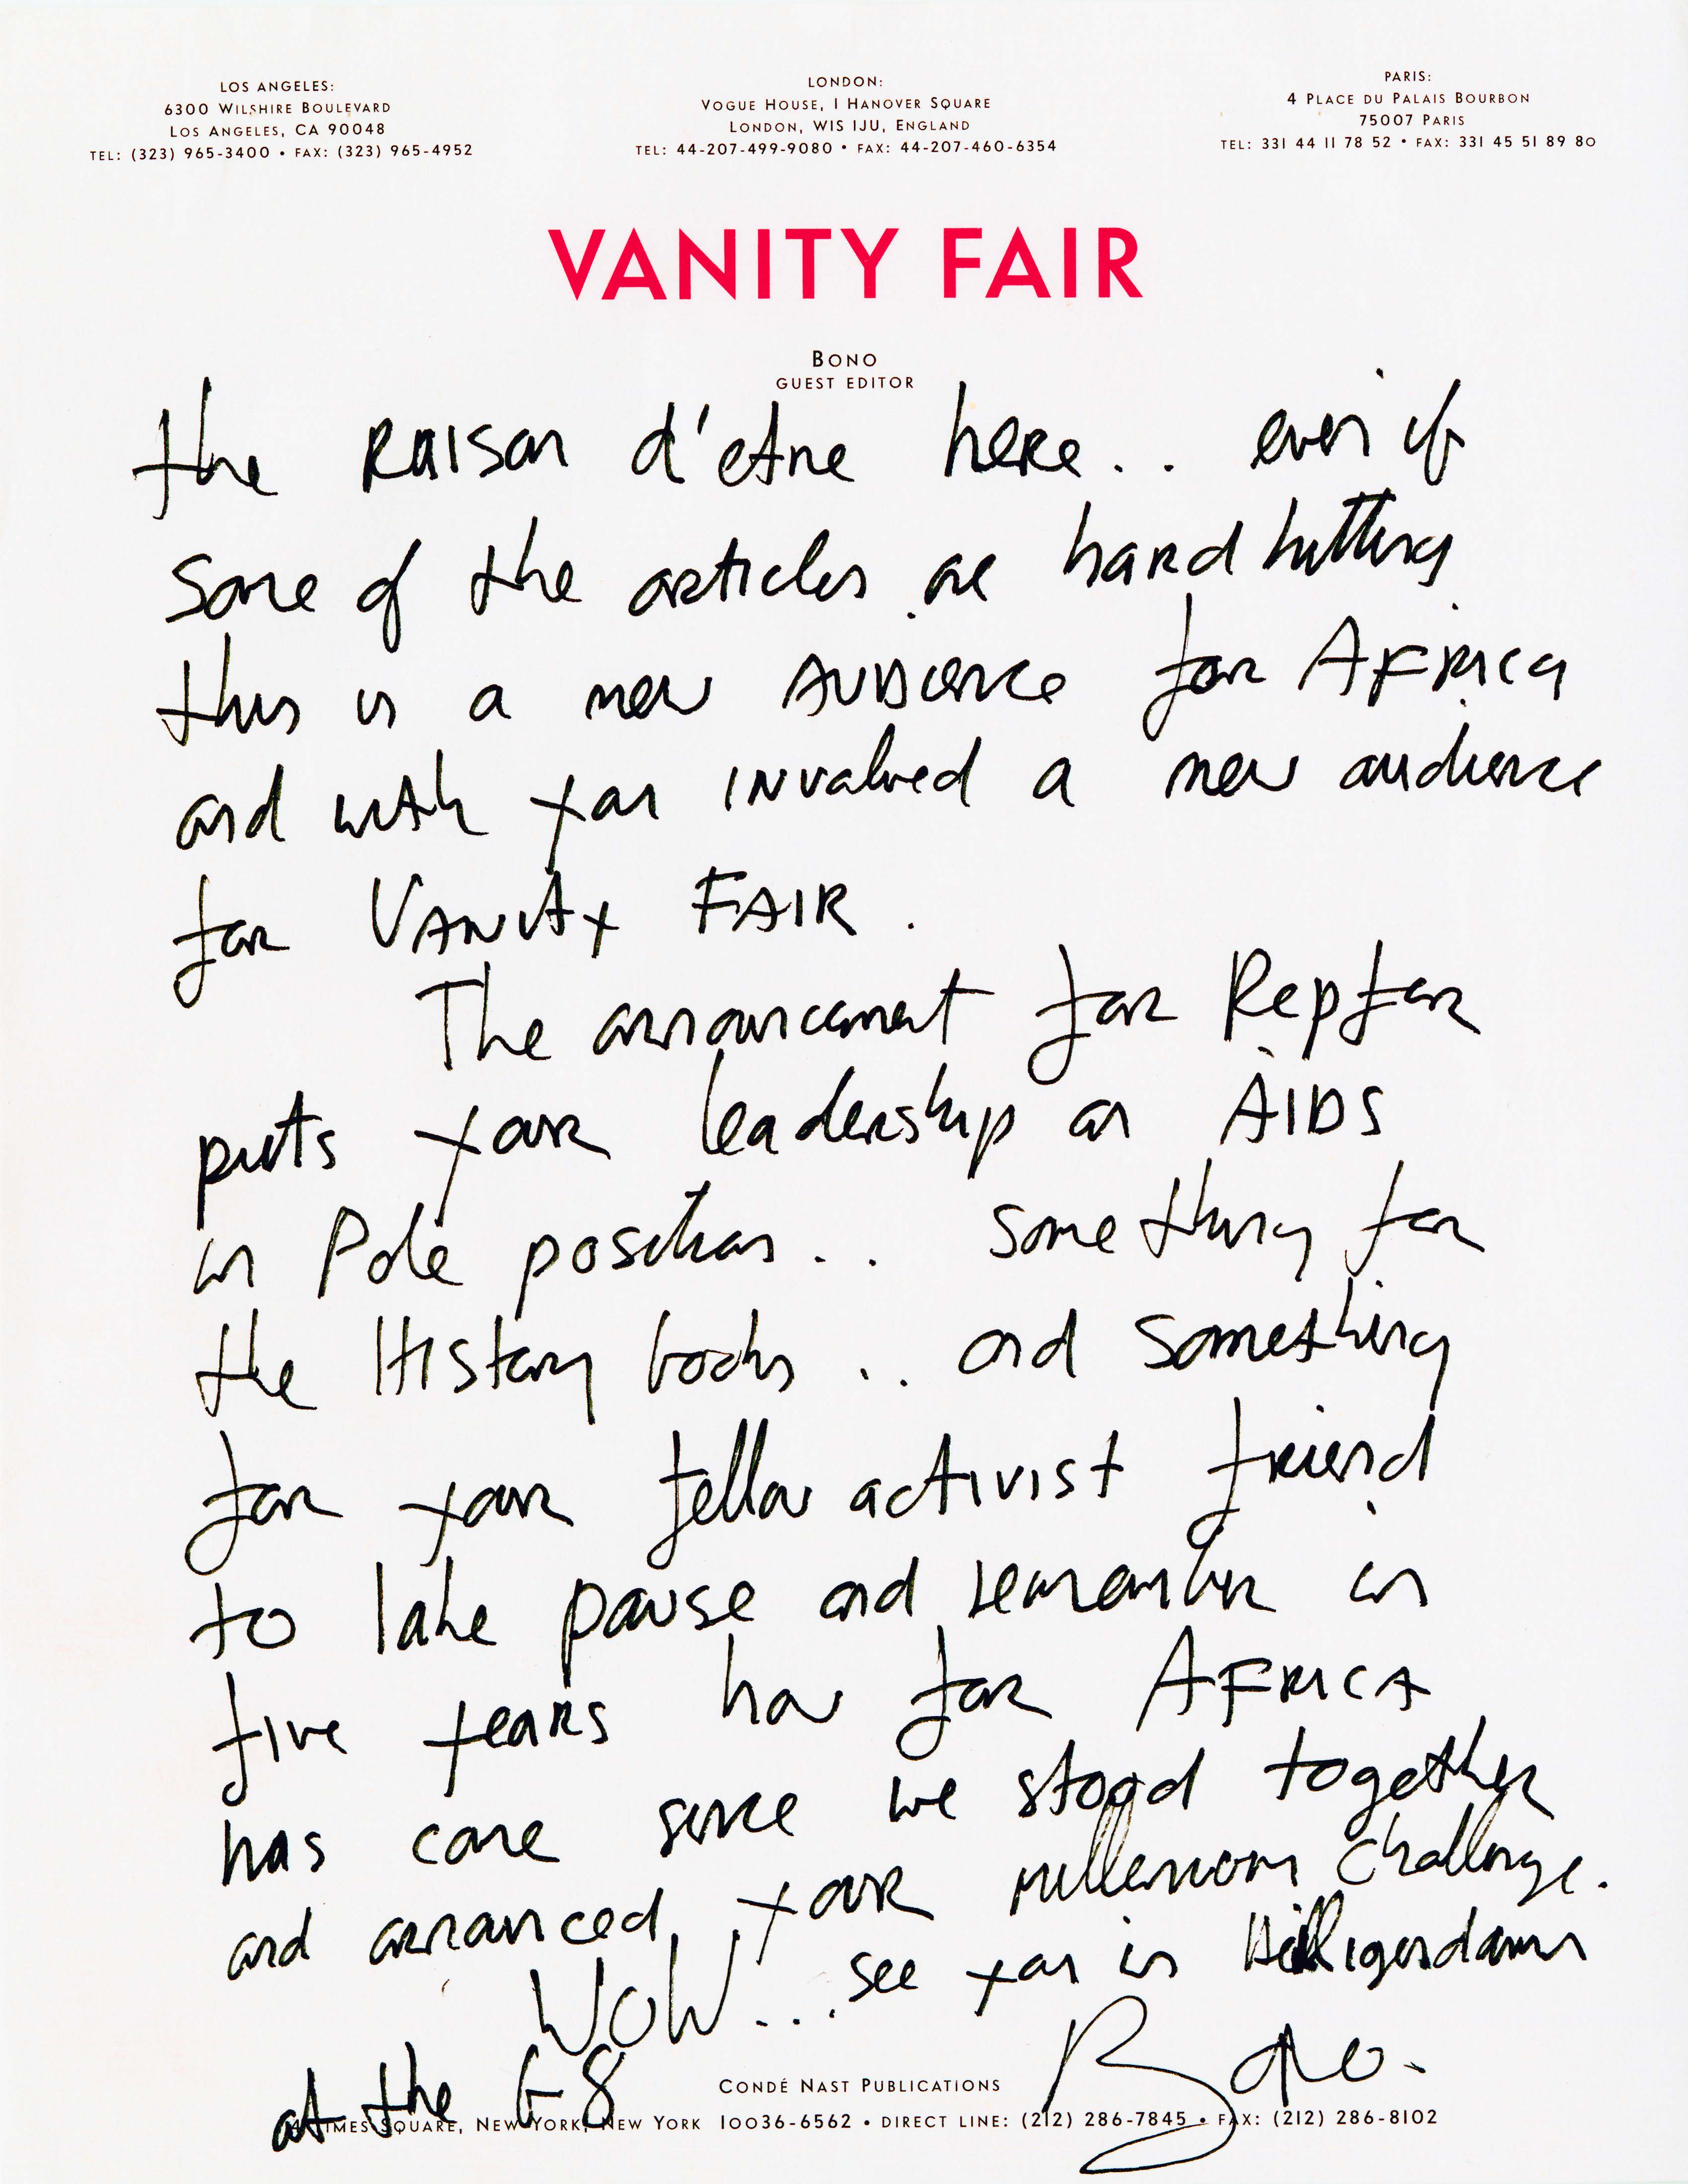 LOS ANGELES:
6300 WILSHIRE BOULEVARD
LOS ANGELES, CA 90048
TEL: (323) 965-3400 • FAX: (323) 965-4952
LONDON:
VOGUE HOUSE, 1 HANOVER SQUARE
LONDON, W1S 1JU, ENGLAND
TEL: 44-207-499-9080 • FAX: 44-207-460-6354
PARIS:
4 PLACE DU PALAIS BOURBON
75007 PARIS
TEL: 331 44 11 78 52 • FAX: 331 45 51 89 80
VANITY FAIR
BONO
GUEST EDITOR
the Raison d'etre here.. even if
some of the articles are hard hitting
this is a new AUDience for AFRica
and with you involved a new audience
for VANITY FAIR.
The announcement for Pepfar
puts your leadership on AIDS
in Pole position.. something for
the History books.. and something
for your fellow activist friend
to take pause and remember in
five years how far AFRICA
has come since we stood together
and announced your millennium challenge.
WOW... see you in Heiligendamm
at the G8 Bono.
CONDÉ NAST PUBLICATIONS
4 TIMES SQUARE, NEW YORK, NEW YORK 10036-6562 • DIRECT LINE: (212) 286-7845 • FAX: (212) 286-8102